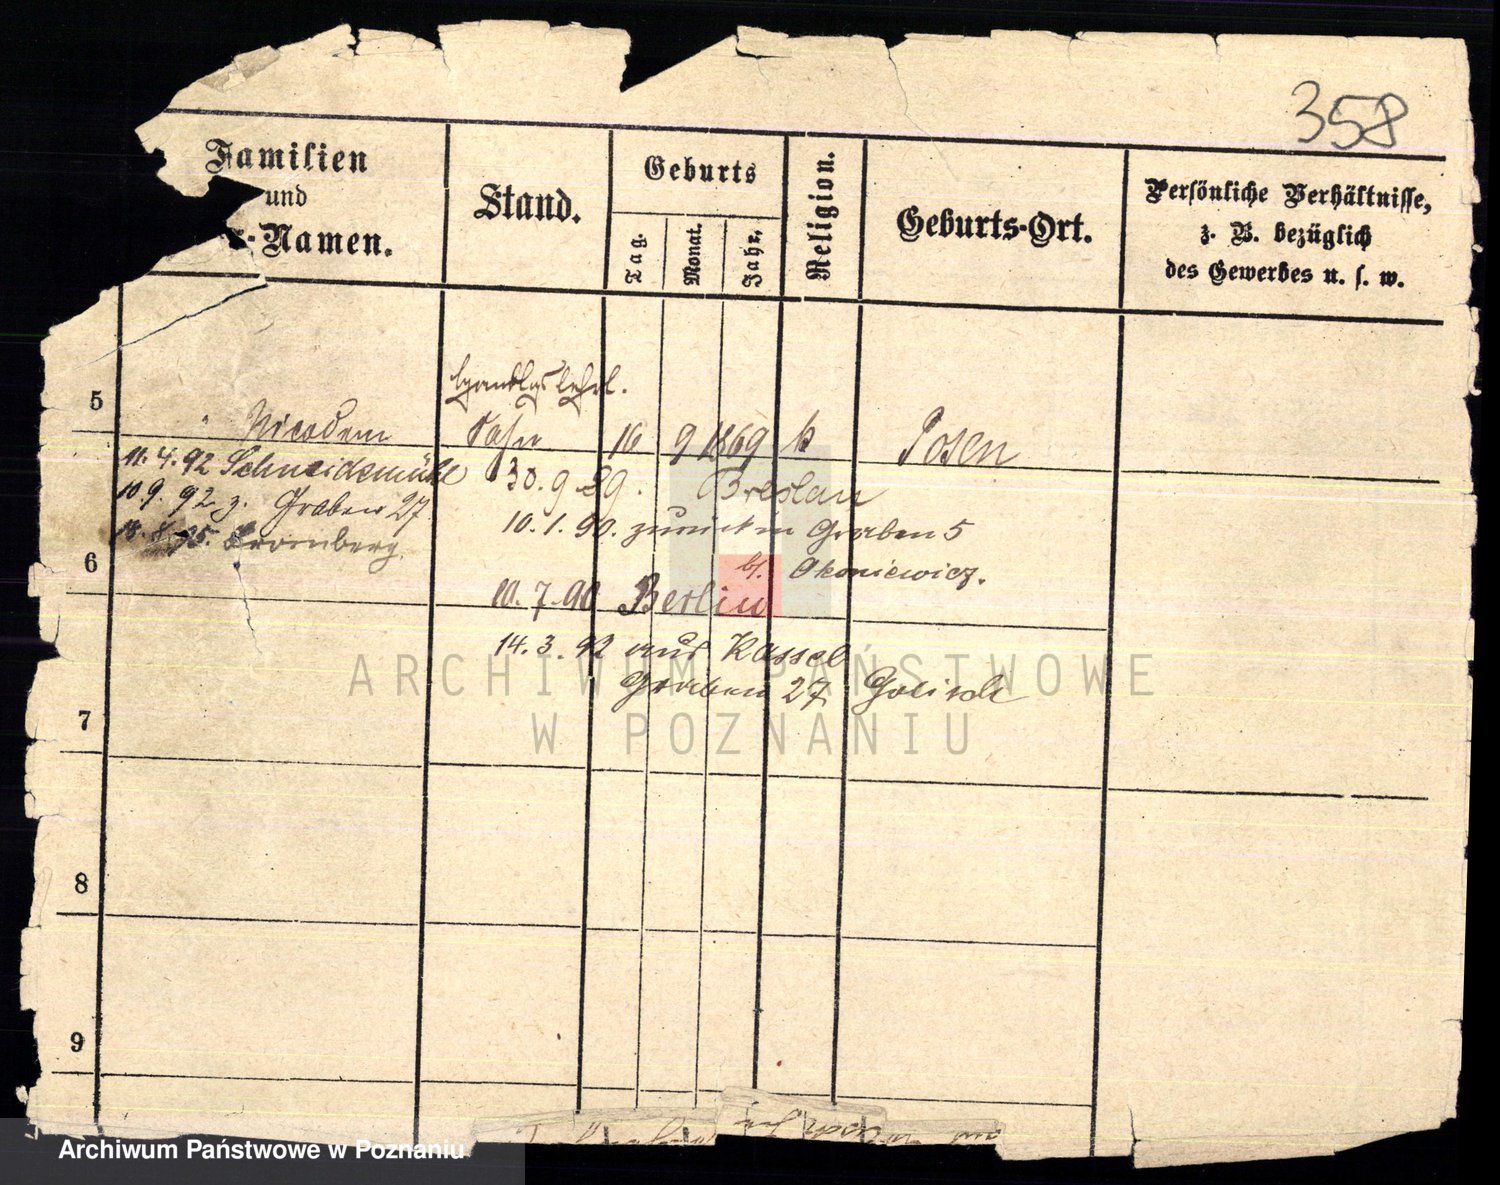 358
Familien
und
-Namen.
Stand.
Geburts
Tag.
Monat.
Jahr.
Religion.
Geburts-Ort.
Persönliche Verhältnisse,
z. B. bezüglich
des Gewerbes u. s. w.
Handlgslehrl.
5
" Nicodem Sohn 16 9 1869 k Posen
11.4.92 Schneidemühl
10.9.92 z. Graben 27
18.8.95. Bromberg.
30.9.89. Breslau
10.1.90. zurück in Graben 5
b/. Okoniewicz.
6
10.7.90 Berlin
14.3.92 aus Kassel
Graben 27 Golisch
7
8
9
ARCHIWUM PAŃSTWOWE
W POZNANIU
Archiwum Państwowe w Poznaniu